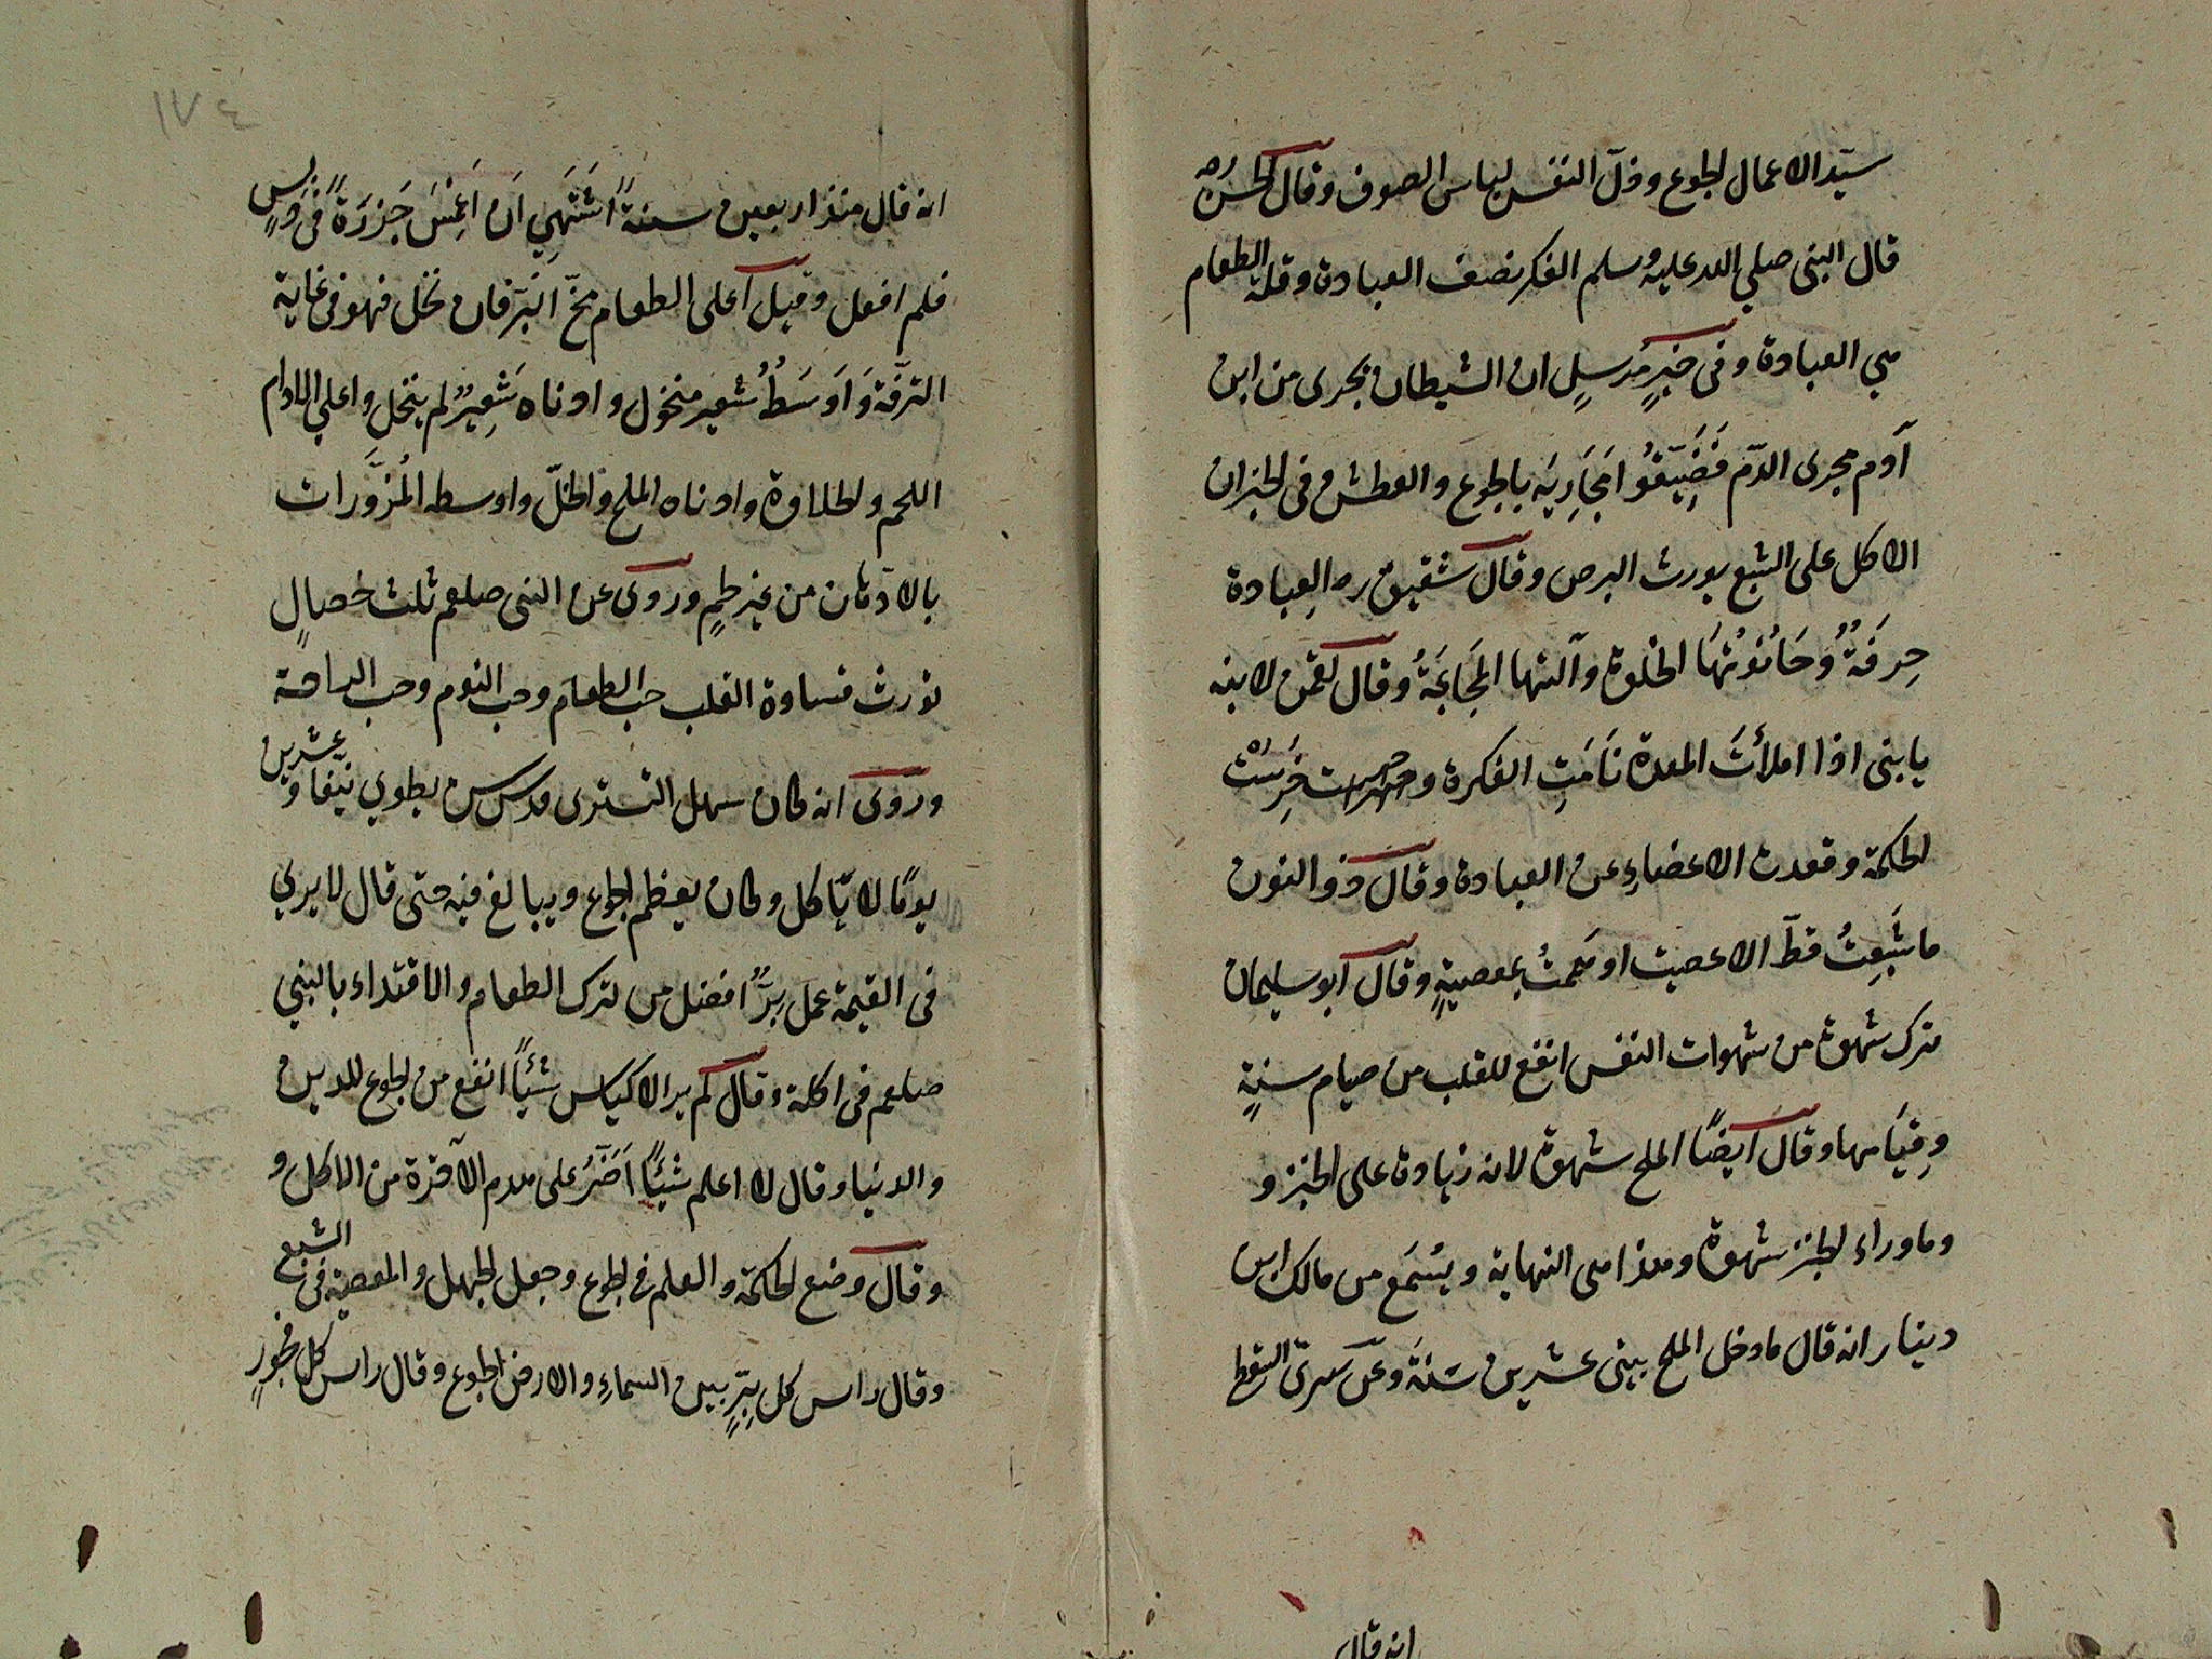 سيّد الاعمال الجوع وذلّ النفس لباس الصوف وقال الحسن ره
قال النبى صلي الله عليه وسلم الفكر نصف العبادة وقلة الطعام
هي العبادة وفى خبرٍ مُرسلٍ ان الشيطان يجرى من ابن
آدم مجرى الدّم فَضَيِّقُوا مَجَارِيَه بالجوع والعطش وفى الخبر ان
الاكل على الشبع يورث البرص وقال شقيق ره العبادة
حِرفَةٌ وَحَانُوتُهَا الخلوة وآلتها المَجَاعَةُ وقال لقمن لابنه
يا بنى اذا املأتَ المعدة نَامَتِ الفكرة وخَرِسَتْ
الحكمة وقعدت الاعضاءِ عن العبادة وقال ذو النون
ما شَبِعتُ قطّ الا عصيت او هَمَمتُ بمعصيةٍ وقال ابو سليمان
ترك شهوة من شهوات النفس انفع للقلب من صيام سنةٍ
وِقيَامها وقال ايضًا الملح شهوة لانه زيادة على الخبز و
وما وراء الخبز شهوة وهذا هى النهاية ويُسْمَع من مالك ابن
دينار انه قال ما دخل الملح بيتى عشرين سَنَةً وعن سرىّ السقط
انه قال
١٧٤
انه قال منذ اربعين سنةً اَشتَهِي اَن اَغمِسَ جَزَرَةً فى دِبسٍ
فلم افعل وقيل اعلى الطعام مخّ البَرّ فان نخل فهو فى غاية
الترفّة وَاَوسَطُهُ شعير منخول وادناه شَعِيرٌ لم ينخل واعلي الادام
اللحم والحلاوة وادناه الملح والخلّ واوسطه المُزَوَّرات
بالادهان من غير لحمٍ وروى عن النبى صلعم ثلث خصالٍ
تورث قساوة القلب حب الطعام وحب النوم وحب الراحة
وروى انه كان سهل التسترى قدس س يطوي نيّفا وعشرين
يومًا لا يّاكل وكان يعظم الجوع ويبالغ فيه حتى قال لا يري
فى القيمة عمل بِرٍّ افضل من ترك الطعام والاقتداء بالنبي
صلعم فى اكله وقال لم ير الاكياس شيْئاً انفع من الجوع للدين
والدنيا وقال لا اعلم شيْئًا اَضَرَّ على هدم الآخرة من الاكل و
وقال وضع الحكمة والعلم فى الجوع وجعل الجهل والمعصية فى الشبع
وقال راس كل برٍّ بين السماءِ والارض الجوع وقال راس كل فجورٍ